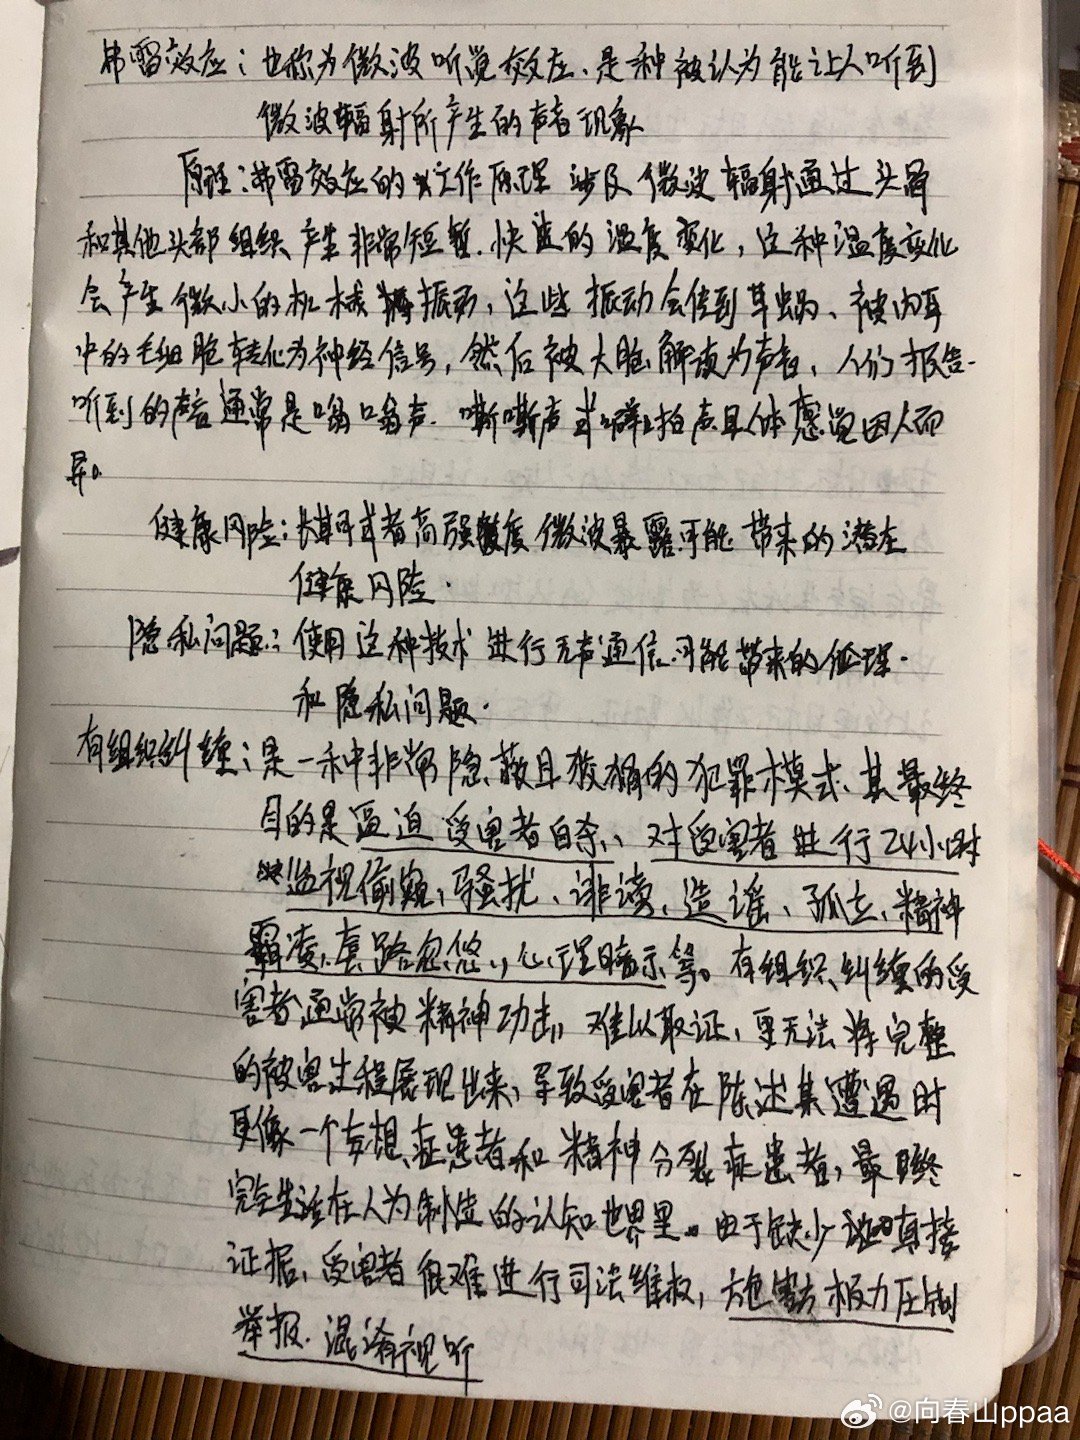 弗雷效应：也称为微波听觉效应、是种被认为能让人听到
微波辐射所产生的声音现象
原理：弗雷效应的工作原理 涉及 微波辐射通过头骨
和其他头部组织产生非常短暂、快速的温度变化，这种温度变化
会产生微小的机械振动，这些振动会传到耳蜗、被内耳
中的毛细胞转化为神经信号，然后被大脑解读为声音、人们报告
听到的声音通常是嗡嗡声、嘶嘶声或噼拍声且体感觉因人而
异。
健康风险：长期或者高强度微波暴露可能带来的潜在
健康风险.
隐私问题：使用这种技术进行无声通信可能带来的伦理.
和隐私问题.
有组织纠缠：是一种非常隐蔽且狡猾的犯罪模式、其最终
目的是逼迫受害者自杀、对受害者进行24小时
监视偷窥、骚扰、诽谤、造谣、孤立、精神
霸凌、套路忽悠、心理暗示等。有组织纠缠的受
害者通常被精神功击，难以取证、更无法将完整
的被害过程展现出来，导致受害者在陈述其遭遇时
更像一个妄想症患者和精神分裂症患者，最终
完全生活在人为制造的认知世界里。由于缺少直接
证据、受害者很难进行司法维权，极力压制
举报、混淆视听
@向春山ppaa